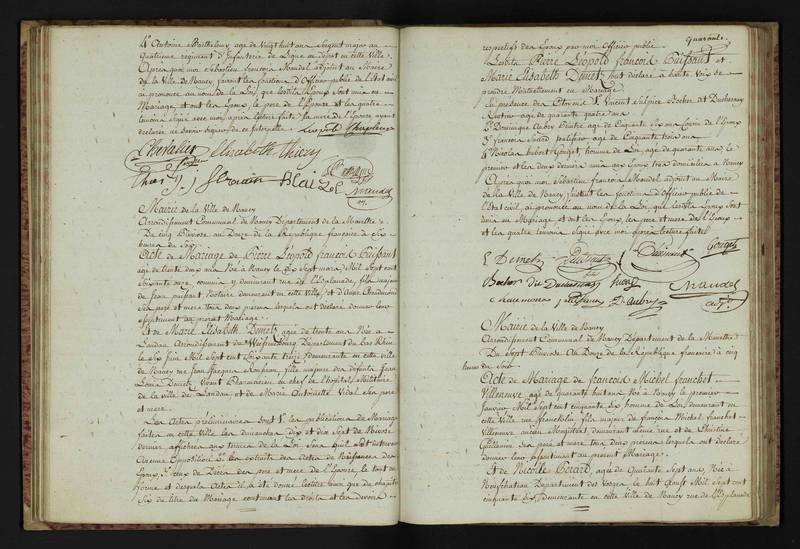 4° Antoine Barthelemy, agé de vingt huit ans, Sergent major au
quatrieme regiment d'Infanterie de Ligne en dépot en cette ville
Après quoi moi Sébastien françois Mandel adjoint au Maire
de la ville de Nancy, faisant les fonctions d'Officier public de l'état civil
ai prononcé au nom de la Loi, que lesdits Epoux sont unis en
Mariage, et ont les Epoux, le pere de l'Epouse et les quatre
temoins signé avec moi, après lecture faite, la mere de l'Epouse ayant
declaré ne savoir signer de ce interpellée
Chevalier Elisabeth Thiery
Mandel
Mairie de la Ville de Nancy
Arrondissement Communal de Nancy Département de la Meurthe
Du cinq Nivose, an Douze de la République françoise à Six
heures du Soir
Acte de Mariage de Pierre Léopold françois Puissant
agé de trente deux ans Né à Nancy le dix Sept mars Mil Sept cent
Soixante onze, commis y demeurant rue de l'Esplanade, fils majeur
de Jean puissant Notaire demeurant en cette Ville, et d'Anne
Ses pere et mere tous deux présens lesquels ont declaré donner leur
consentement au present Mariage.
Et de Marie Elisabeth Demetz, agée de trente ans Née à
Landau Arrondissement de Weissembourg Département du bas Rhin
le Six Juin Mil Sept cent Soixante treize, demeurante en cette ville
de Nancy rue Jean Jacques Rousseau, fille majeure des défunts Jean
Louis Demetz, vivant Pharmacien en chef de l'hopital Militaire
de la ville de Landau et de Marie Antoinette Vidal Ses pere
et mere.
Les Actes préliminaires sont 1° les publications de Mariage
faites en cette Ville les dimanches dix et dix Sept de Nivose
dernier, affichées aux termes de la Loi sans qu'il soit survenu
Aucune Opposition. 2° Les extraits des Actes de Naissance des
Epoux. 3° ceux de Décès des pere et mere de l'Epouse le tout en
forme et desquels il a été donné lecture ainsi que du chapitre
Six du titre du Mariage contenant les droits et les devoirs
Quarante.
respectifs des Epoux par moi Officier public
Lesdits Pierre Léopold françois Puissant et
Marie Elisabeth Demetz, ont declaré à haute voix se
prendre Mutuellement en Mariage.
En presence des Citoyens 1° Vincent Sulpice Bector dit Ducherray
Rentier agé de quarante quatre ans
2° Dominique Aubry Peintre agé de Cinquante Six ans Cousin de l'Epoux
3° françois Suard professeur agé de Cinquante trois ans
4° Nicolas hubert Gouget, homme de Loi, agé de quarante ans, le
premier et les deux derniers amis aux Epoux tous domiciliés à Nancy
Après quoi moi Sébastien françois Mandel adjoint au Maire
de la Ville de Nancy, faisant les fonctions d'Officier public de
l'état civil, ai prononcé au nom de la Loi, que lesdits Epoux sont
unis en Mariage et ont les Epoux, les pere et mere de l'Epoux
et les quatre temoins signé avec moi après lecture faite.
E Demetz Puissant Puissant Gouget
Suard Mandel
D. Aubry adj.
Mairie de la Ville de Nancy
Arrondissement Communal de Nancy Département de la Meurthe
Du Sept Nivose An Douze de la République françoise à cinq
heures du soir
Acte de Mariage de françois Michel franchot
Villeneuve agé de quarante huit ans Né à Nancy le premier
Janvier Mil Sept cent cinquante Six homme de Loi, demeurant en
cette Ville rue Franchise, fils majeur de françois Michel franchot
Villeneuve ancien Magistrat demeurant même rue et de Christine
Guillaume Ses pere et mere tous deux présens lesquels ont declaré
donner leur consentement au present Mariage.
Et de Nicolle Berard, agée de Quarante Sept ans, Née à
Neufchateau Département des Vosges le huit Aoust Mil Sept cent
cinquante Six, demeurante en cette Ville de Nancy rue de l'Esplanade